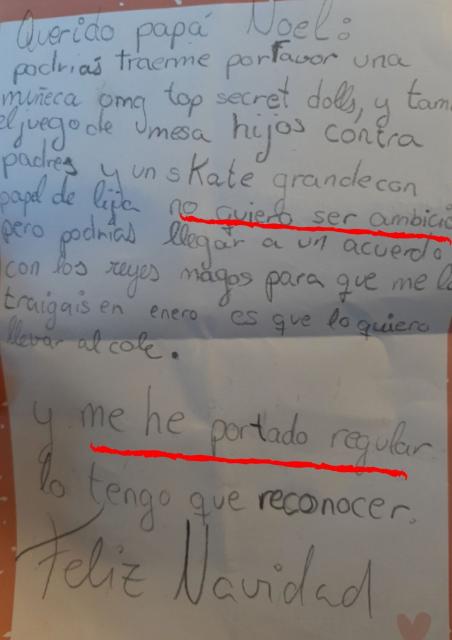 Querido papá Noel:
podrias traerme porfavor una
muñeca omg top secret dolls, y tam
el juego de mesa hijos contra
padres y un skate grande con
papel de lija no quiero ser ambicio
pero podrias llegar a un acuerdo
con los reyes magos para que me lo
traigais en enero es que lo quiero
llevar al cole.
y me he portado regular
lo tengo que reconocer.
Feliz Navidad